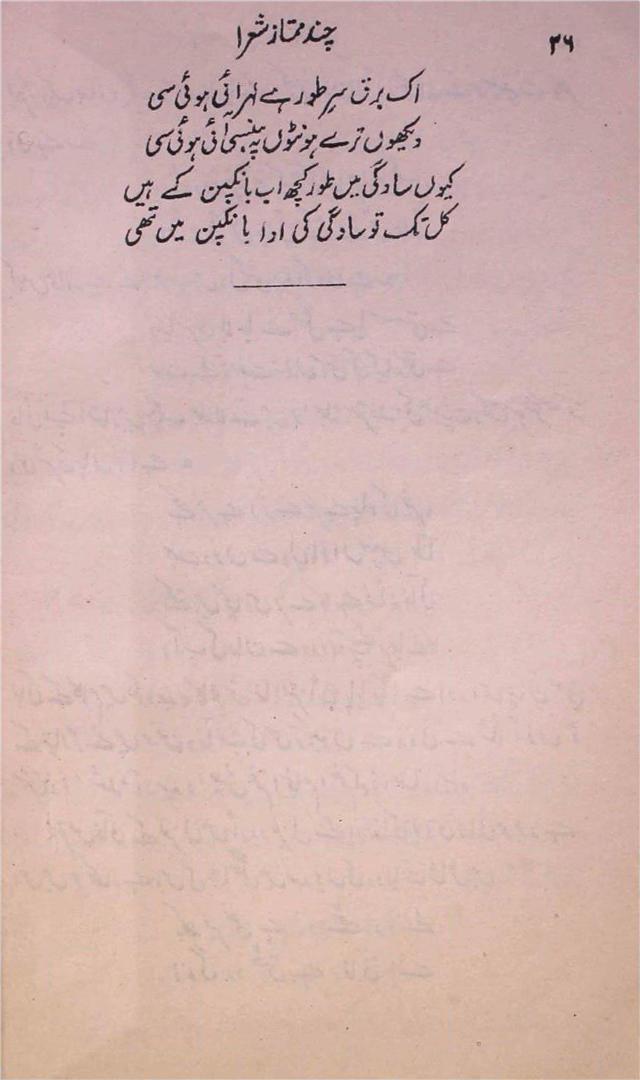 ۳۶
چند ممتاز شعرا
اک برق سرِ طور ہے لہرائی ہوئی سی
دیکھوں ترے ہونٹوں پہ ہنسی آئی ہوئی سی
کیوں سادگی میں طور کچھ اب بانکپن کے ہیں
کل تک تو سادگی کی ادا بانکپن میں تھی